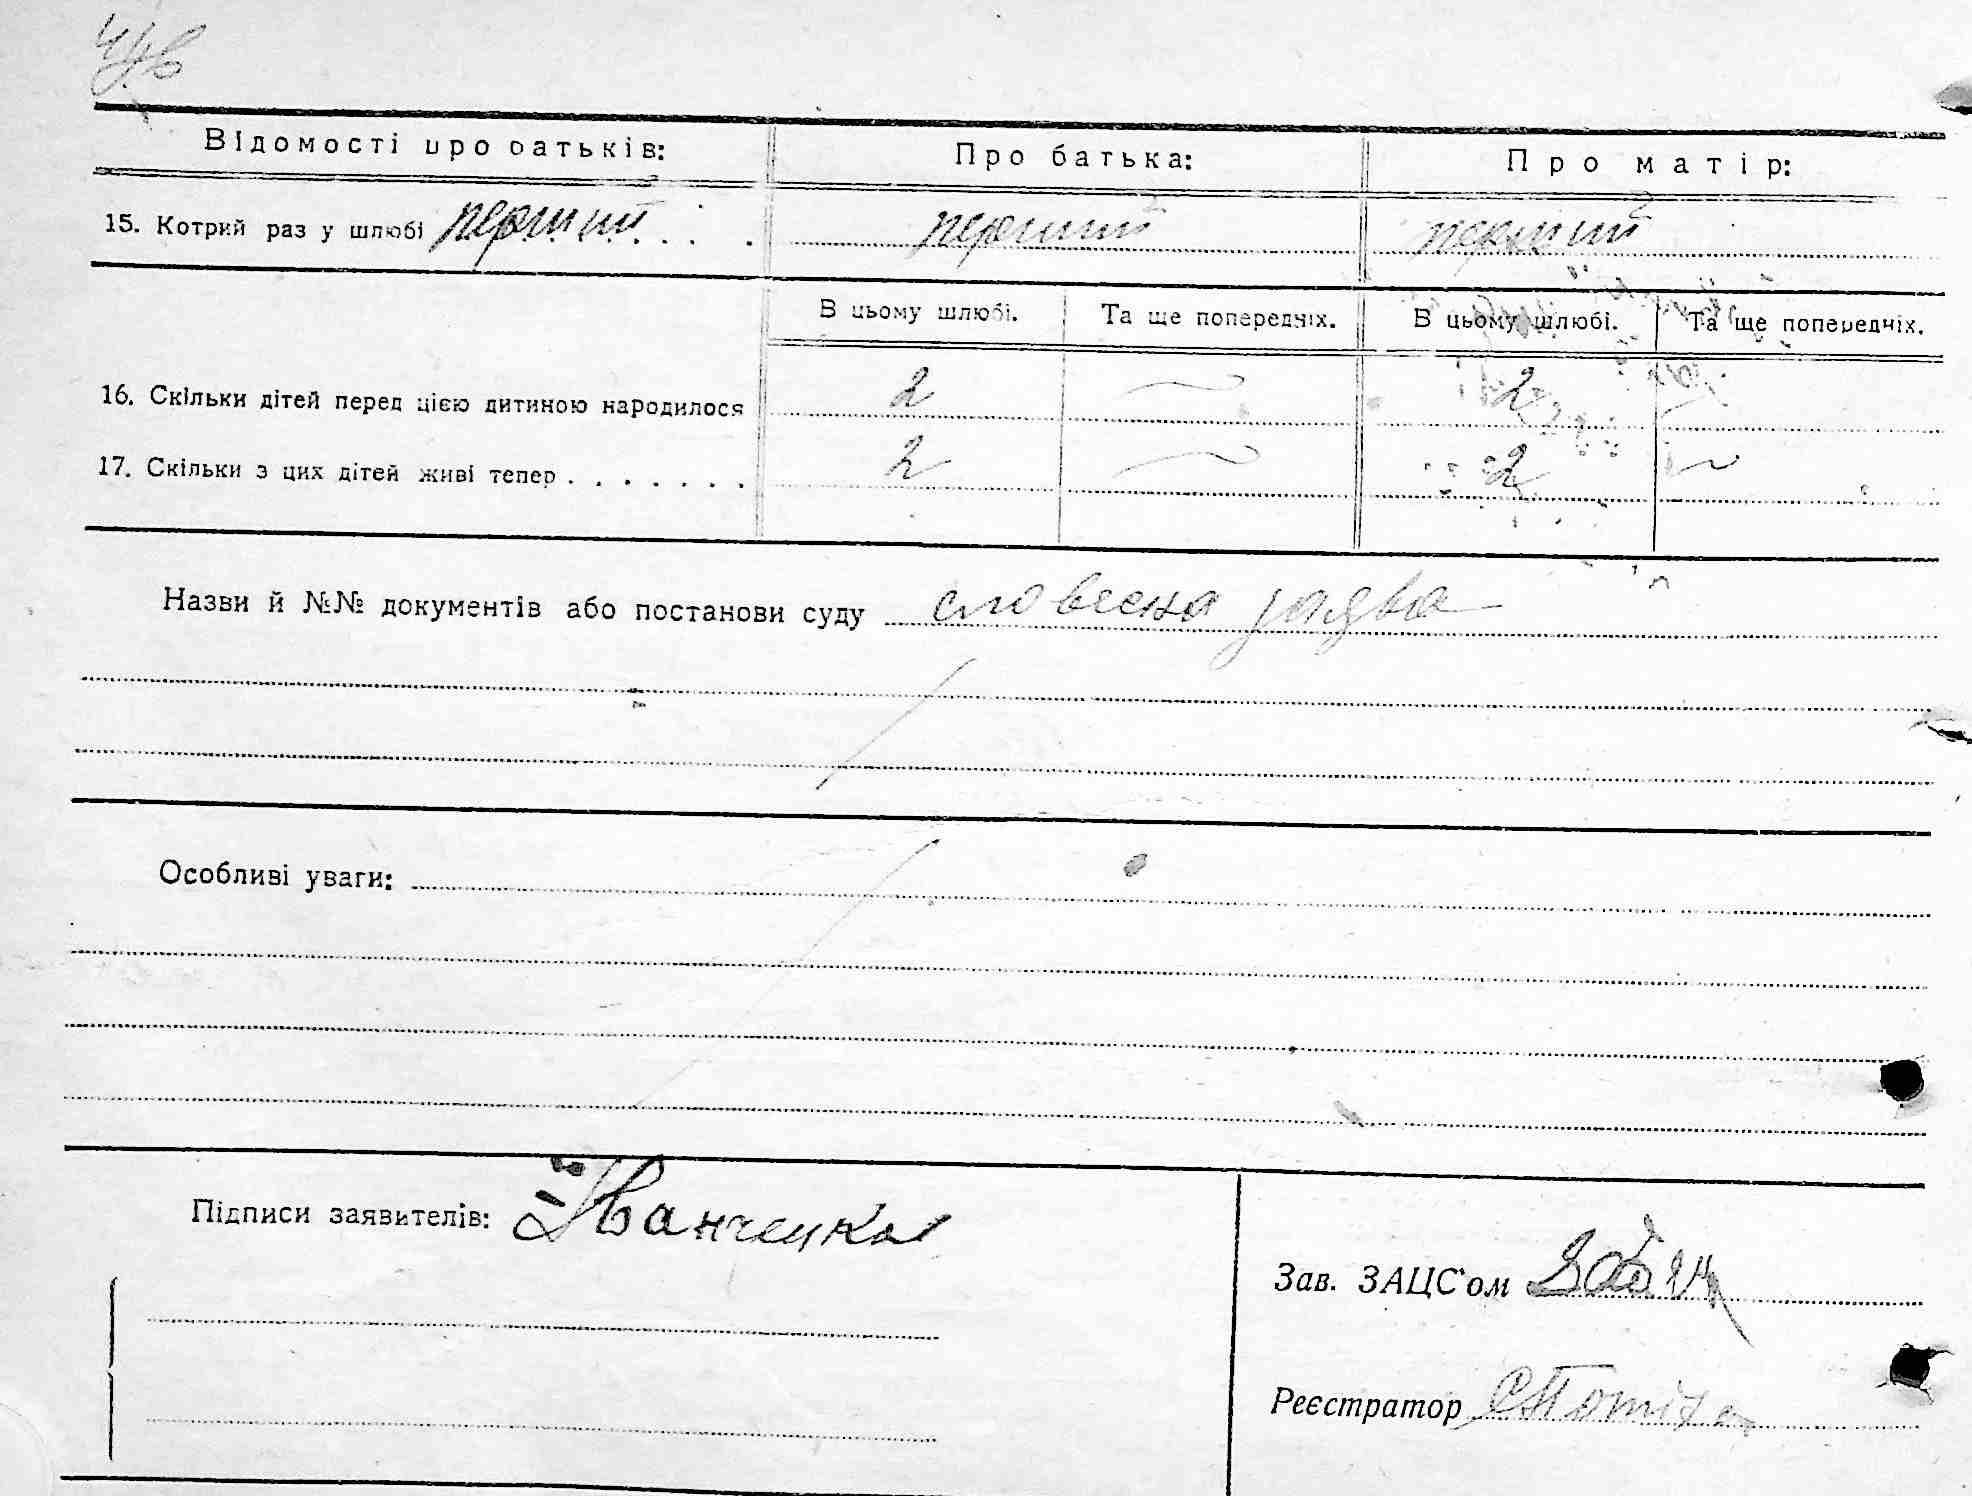 Відомості про батьків: Про батька: Про матір:
15. Котрий раз у шлюбі перший . . . перший перший
В цьому шлюбі. Та ще попередніх. В цьому шлюбі. Та ще попередніх.
16. Скільки дітей перед цією дитиною народилося 2 — 2 —
17. Скільки з цих дітей живі тепер . . . . . . . 2 — 2 —
Назви й №№ документів або постанови суду словесна заява
Особливі уваги:
Підписи заявителів: Иванченко
Зав. ЗАЦС'ом
Реєстратор